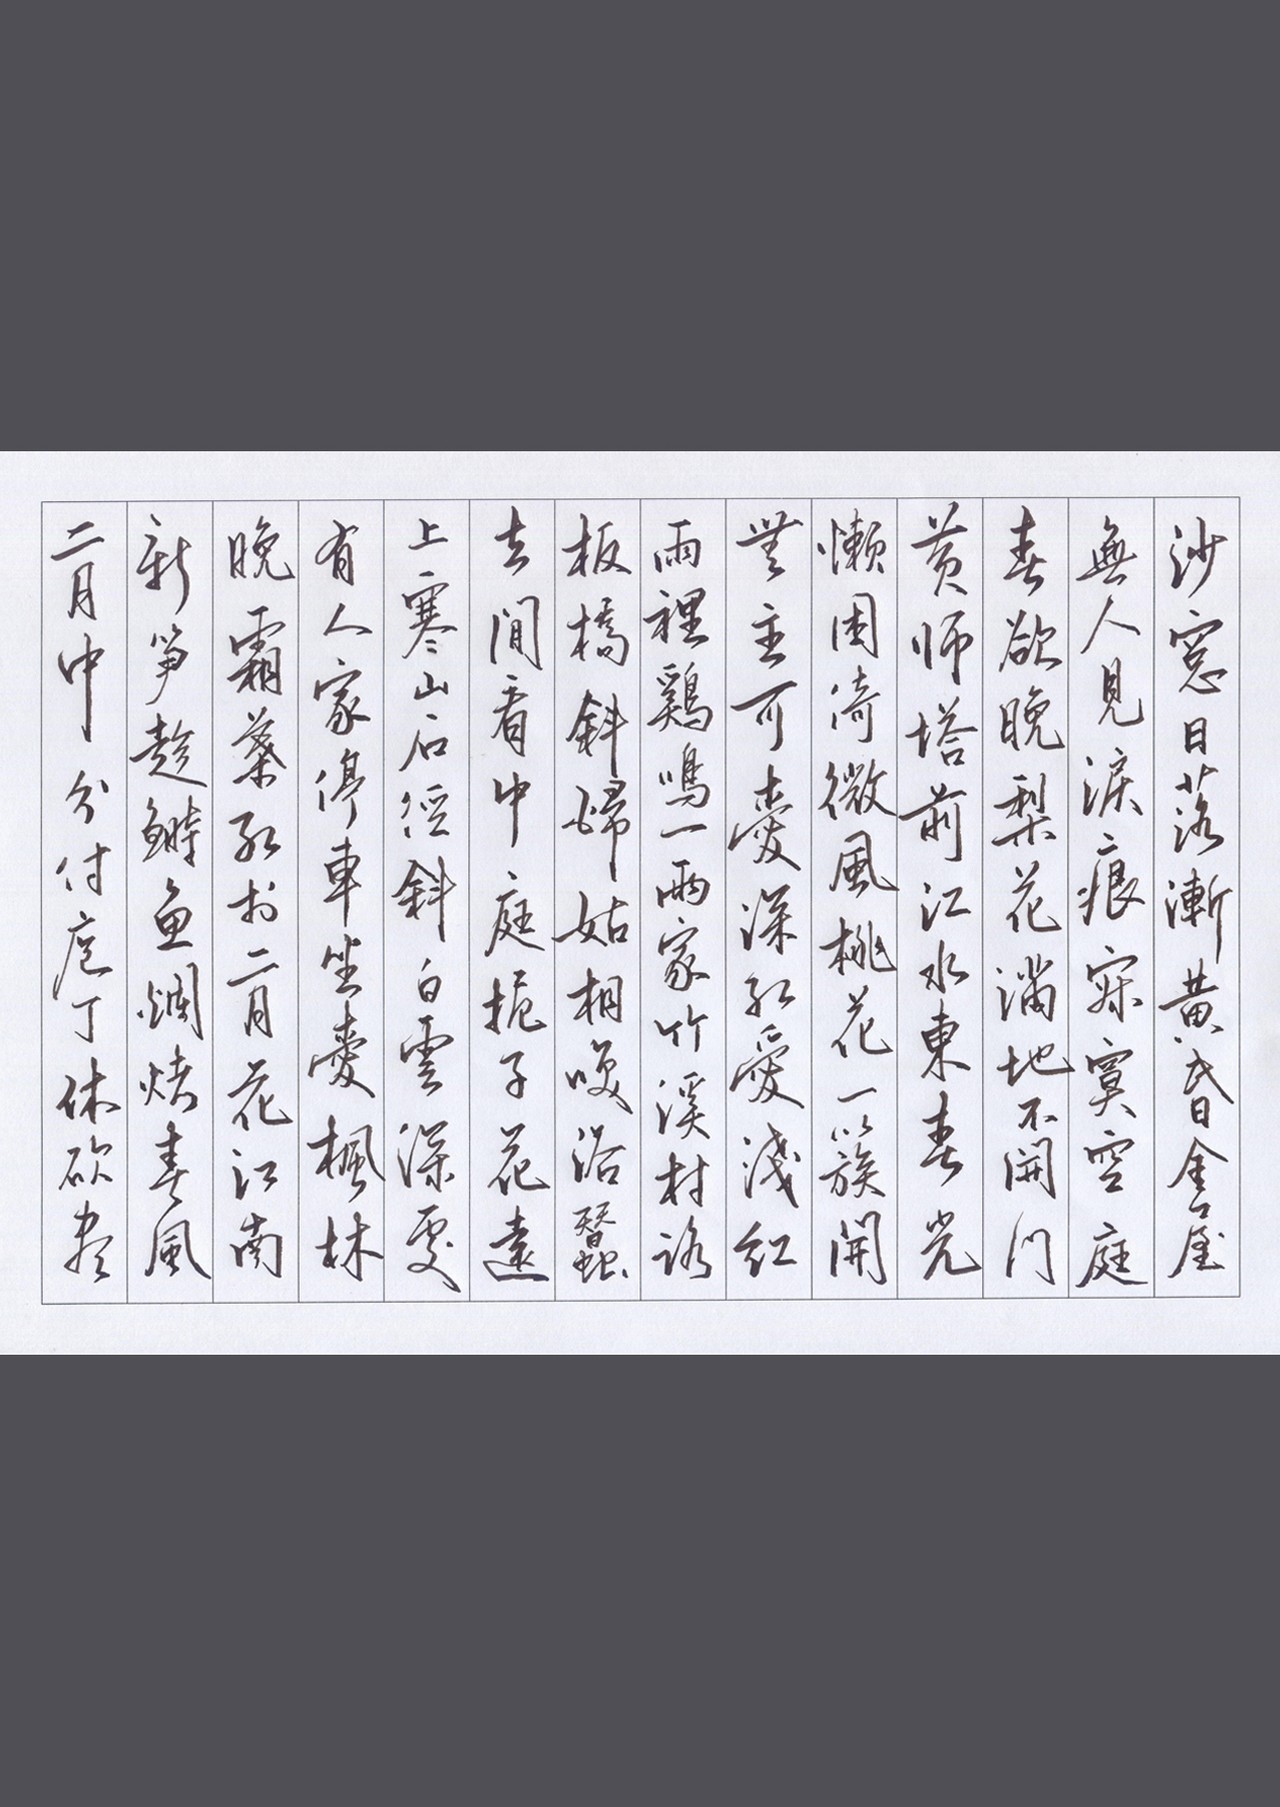 沙窓日落漸黄昏金屋
無人見淚痕寂寞空庭
春欲晚梨花滿地不開門
黄师塔前江水東春光
懒困倚微風桃花一簇開
無主可愛深紅愛淺紅
雨裡鷄鳴一兩家竹溪村路
板橋斜婦姑相喚浴蠶
去閒看中庭梔子花遠
上寒山石徑斜白雲深處
有人家停車坐愛楓林
晚霜葉紅於二月花江南
新笋趁鰣魚爛煮春風
二月中分付庖丁休砍盡